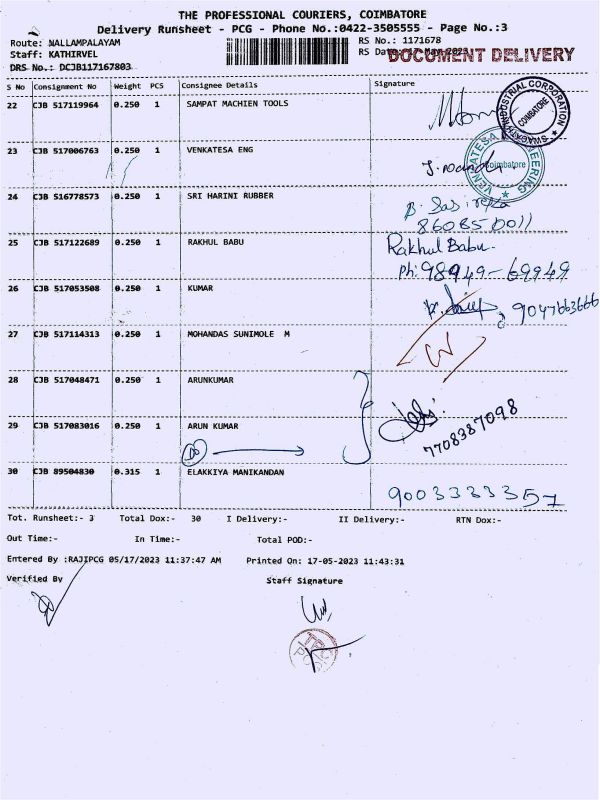 THE PROFESSIONAL COURIERS, COIMBATORE
Delivery Runsheet - PCG - Phone No.:0422-3505555 - Page No.:3
Route: NALLAMPALAYAM
RS No.: 1171678
Staff: KATHIRVEL
RS Date:
DOCUMENT DELIVERY
DRS No.: DCJB117167803
S No Consignment No Weight PCS Consignee Details Signature
22 CJB 517119964 0.250 1 SAMPAT MACHIEN TOOLS
INDUSTRIAL CORPORATION COIMBATORE
23 CJB 517006763 0.250 1 VENKATESA ENG
VENKATESA ENGINEERING Coimbatore
24 CJB 516778573 0.250 1 SRI HARINI RUBBER
B. Sasireka
860850011
25 CJB 517122689 0.250 1 RAKHUL BABU
Rakhul Babu.
Ph: 98949-69949
26 CJB 517053508 0.250 1 KUMAR
9047663666
27 CJB 517114313 0.250 1 MOHANDAS SUNIMOLE M
28 CJB 517048471 0.250 1 ARUNKUMAR
29 CJB 517083016 0.250 1 ARUN KUMAR
7708387098
30 CJB 89504830 0.315 1 ELAKKIYA MANIKANDAN
9003333357
Tot. Runsheet:- 3 Total Dox:- 30 I Delivery:- II Delivery:- RTN Dox:-
Out Time:- In Time:- Total POD:-
Entered By :RAJIPCG 05/17/2023 11:37:47 AM Printed On: 17-05-2023 11:43:31
Verified By Staff Signature